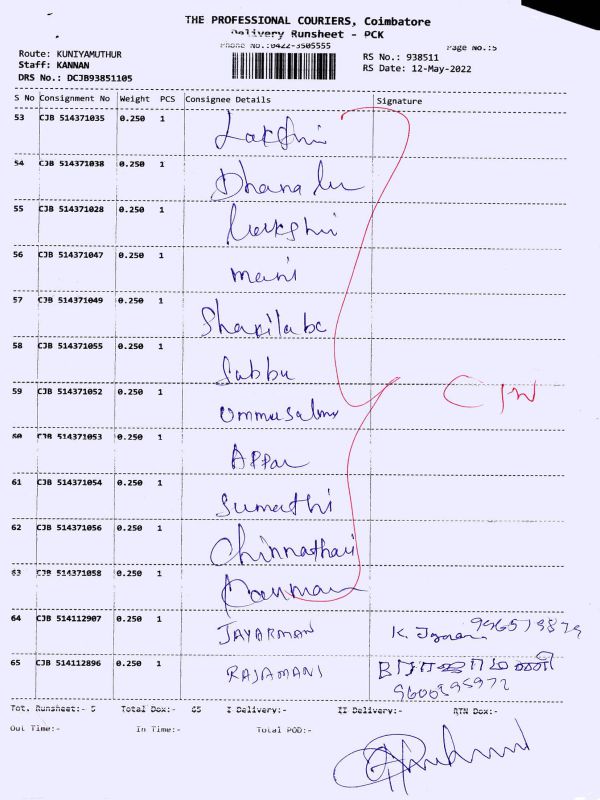 THE PROFESSIONAL COURIERS, Coimbatore
Delivery Runsheet - PCK
Phone No.:0422-3505555
Page No.:5
Route: KUNIYAMUTHUR
RS No.: 938511
Staff: KANNAN
RS Date: 12-May-2022
DRS No.: DCJB93851105
S No Consignment No Weight PCS Consignee Details Signature
53 CJB 514371035 0.250 1 Lakshi
54 CJB 514371038 0.250 1 Dhana lu
55 CJB 514371028 0.250 1 lakshi
56 CJB 514371047 0.250 1 mani
57 CJB 514371049 0.250 1 Sharila be
58 CJB 514371055 0.250 1 Sabbu
59 CJB 514371052 0.250 1 Ummusalma
CIN
60 CJB 514371053 0.250 1 APPan
61 CJB 514371054 0.250 1 Sumathi
62 CJB 514371056 0.250 1 Chinnathai
63 CJB 514371058 0.250 1
64 CJB 514112907 0.250 1 JAYARMAN K.
65 CJB 514112896 0.250 1 RAJAMANI
Tot. Runsheet:- 5 Total Dox:- 65 I Delivery:- II Delivery:- RTN Dox:-
Out Time:- In Time:- Total POD:-